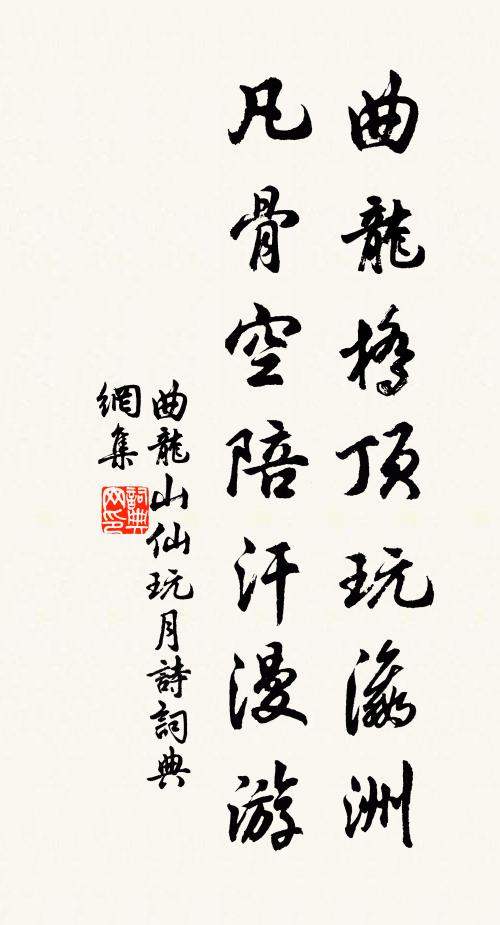 曲龍橋頂玩瀛洲
凡骨空陪汗漫游
曲龍山仙玩月詩詞典
網集
詞典
网印